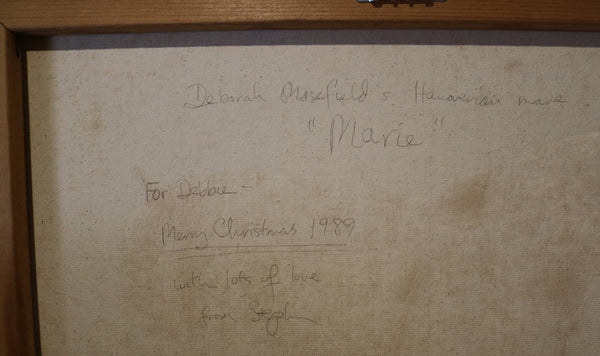 Deborah Masefield's Hanoverian mare
"Marie"
For Debbie -
Merry Christmas 1989
with lots of love
from Stephen